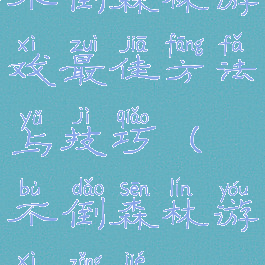 不倒森林游
xì zuì jiā fāng fǎ
戏最佳方法
yǔ jì qiǎo
与技巧（
bù dǎo sēn lín yóu
不倒森林游
xì zǒng jié